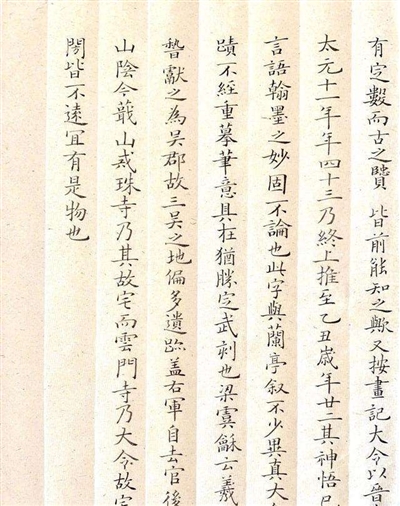 有定數而古之賾 皆前能知之歟又按畫記大令以晉
太元十一年年四十三乃終上推至乙丑歲年廿二其神悟
言語翰墨之妙固不論也此字與蘭亭叙不少異真大
蹟不經重摹筆意具在猶勝定武刻也梁虞龢云羲
獻之為吳郡故三吳之地偏多遺跡蓋右軍自去官後
山陰今蕺山戒珠寺乃其故宅而雲門寺乃大令故宅
皆不遠冝有是物也